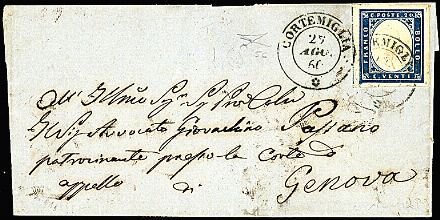 CORTEMIGLIA
25
AGO.
60
FRANCO C. POSTE 20 BOLLO
C. VENTI
All' Illmo Sigr Sigr
Il Sig. Avvocato Giovachino Passano
patrocinante presso la Corte d'
appello di
Genova